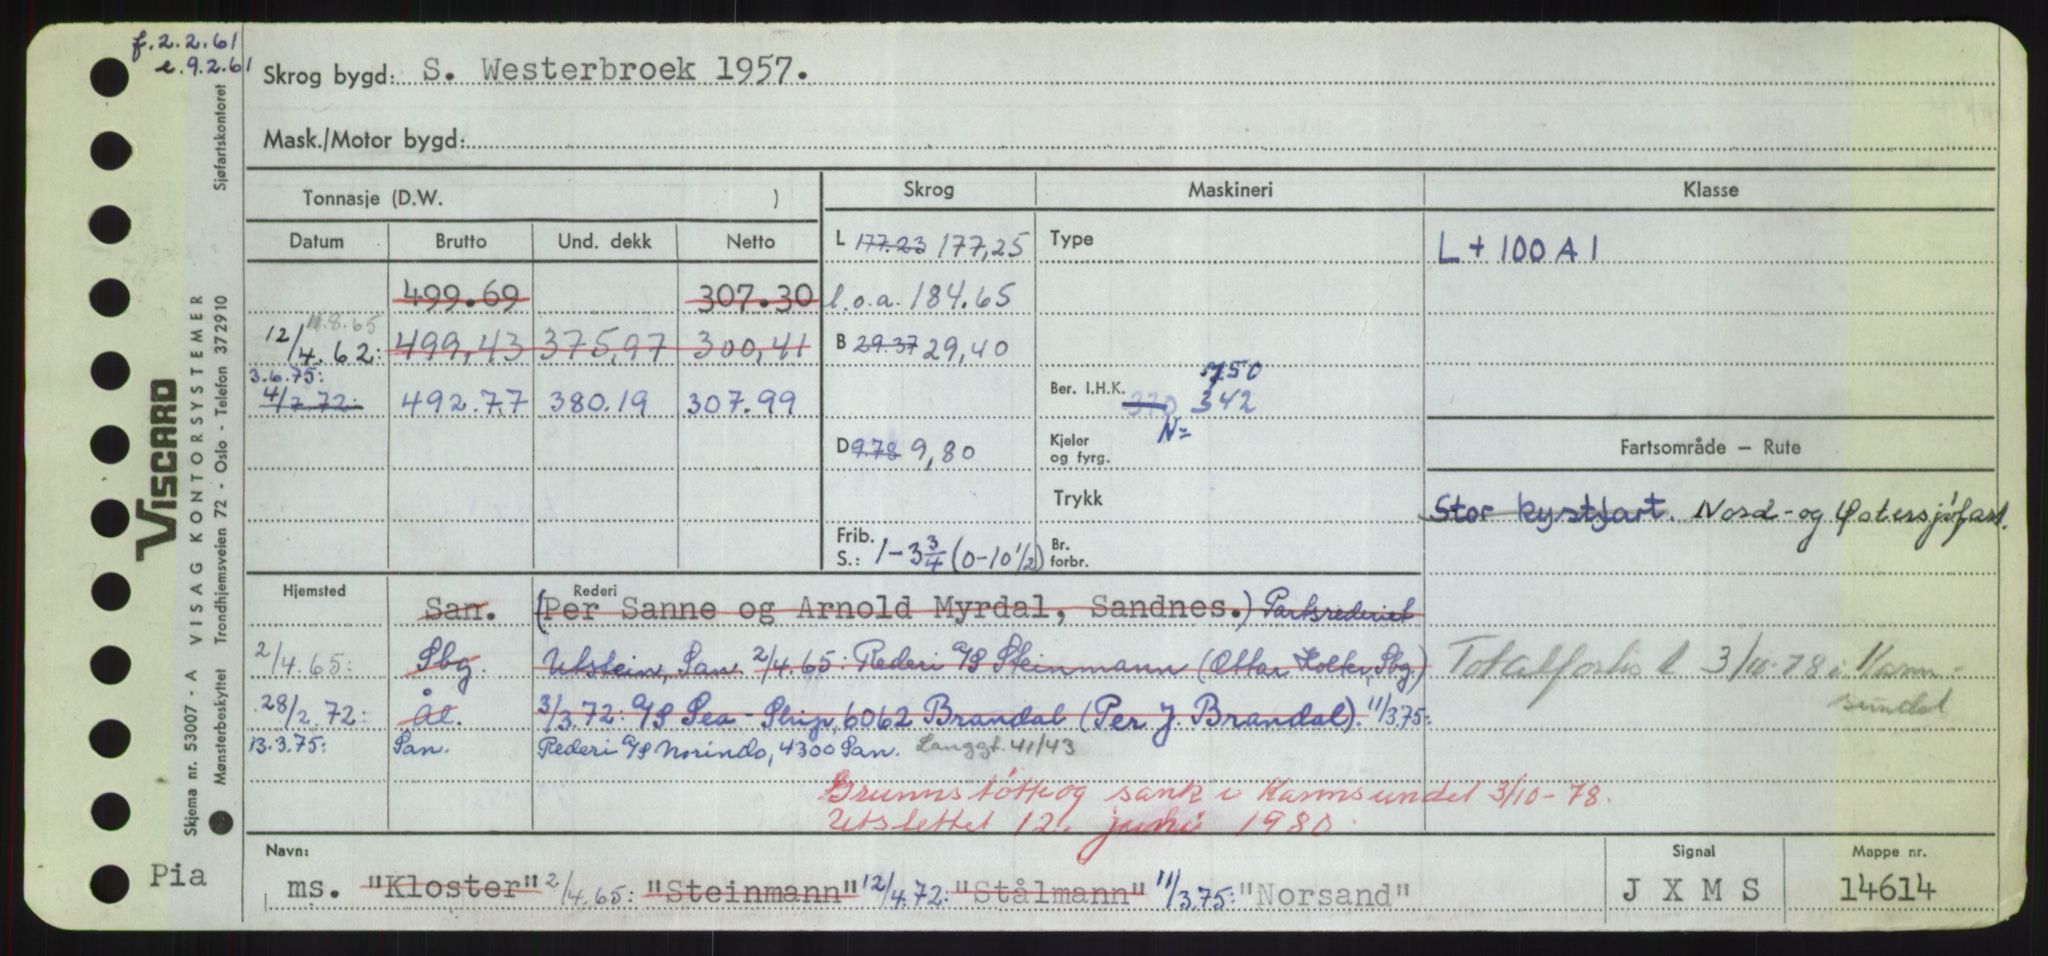 f. 2.2.61
e. 9.2.61
Skrog bygd: S. Westerbroek 1957.
Mask./Motor bygd:
Tonnasje (D.W. )
Skrog
Maskineri
Klasse
Datum Brutto Und. dekk Netto
L 177.23 177,25
Type
L + 100 A 1
499.69 307.30
l.o.a. 184.65
11.8.65
12/4.62: 499,43 375,97 300,41
B 29.37 29,40
3.6.75:
4/7 72: 492.77 380.19 307.99
750
Ber. I.H.K. 370 342
N=
Kjeler
og fyrg.
D 9.78 9,80
Fartsområde — Rute
Trykk
Stor kystfart. Nord- og Østersjøfart.
Frib.
S.: 1-3 3/4 (0-10 1/2)
Br.
forbr.
Hjemsted Rederi
San. (Per Sanne og Arnold Myrdal, Sandnes.) Partsrederiet
2/4.65: Sbg. Utstein, San. 2/4.65: Rederi A/S Steinmann (Ottar Holter, Sbg.)
Totalforlis 3/10-78 i Karm-
sundet
28/2.72: Ål. 3/3.72: A/S Sea-Ship, 6062 Brandal (Per J. Brandal). 11/3.75:
13.3.75: San. Rederi A/S Norindo, 4300 San. Langgt. 41/43
Grunnstøtte og sank i Karmsundet 3/10-78.
Utslettet 12. juni 1980.
Navn: Signal Mappe nr.
Pia
ms. "Kloster" 2/4.65: "Steinmann" 12/4.72: "Stålmann" 11/3.75: "Norsand" J X M S 14614
VISCARD
Skjema nr. 53007 - A VISAG KONTORSYSTEMER
Mønsterbeskyttet Trondhjemsveien 72 - Oslo - Telefon 372910 Sjøfartskontoret